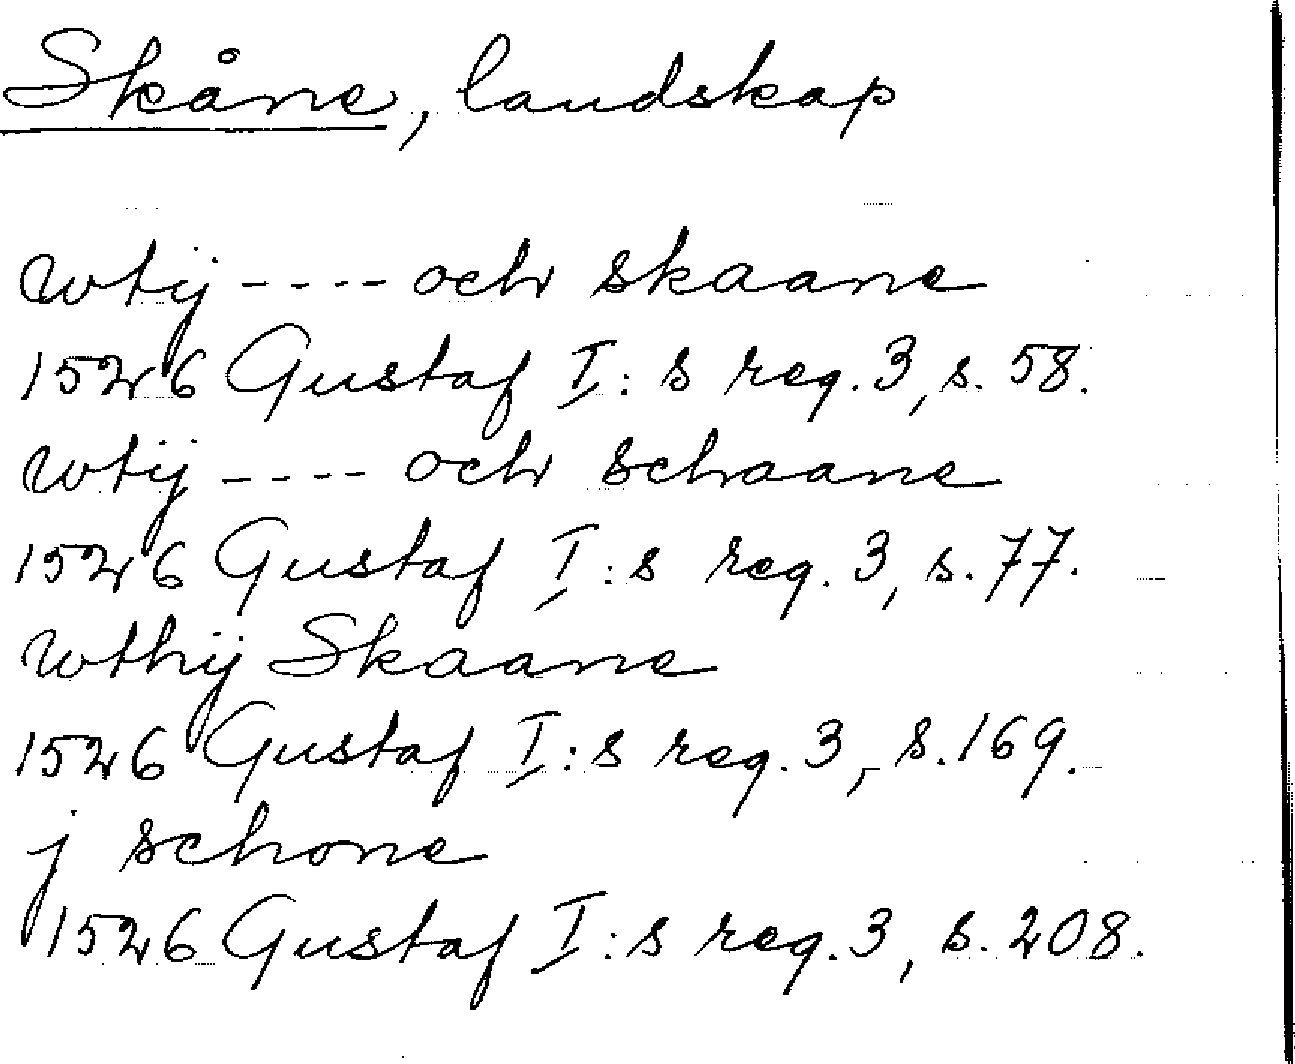 Skåne, landskap
wtij ---- och skaane
1526 Gustaf I:s reg. 3, s. 58.
wtij ---- och schaane
1526 Gustaf I:s reg. 3, s. 77.
wthij Skaane
1526 Gustaf I:s reg. 3, s. 169.
j schone
1526 Gustaf I:s reg. 3, s. 208.